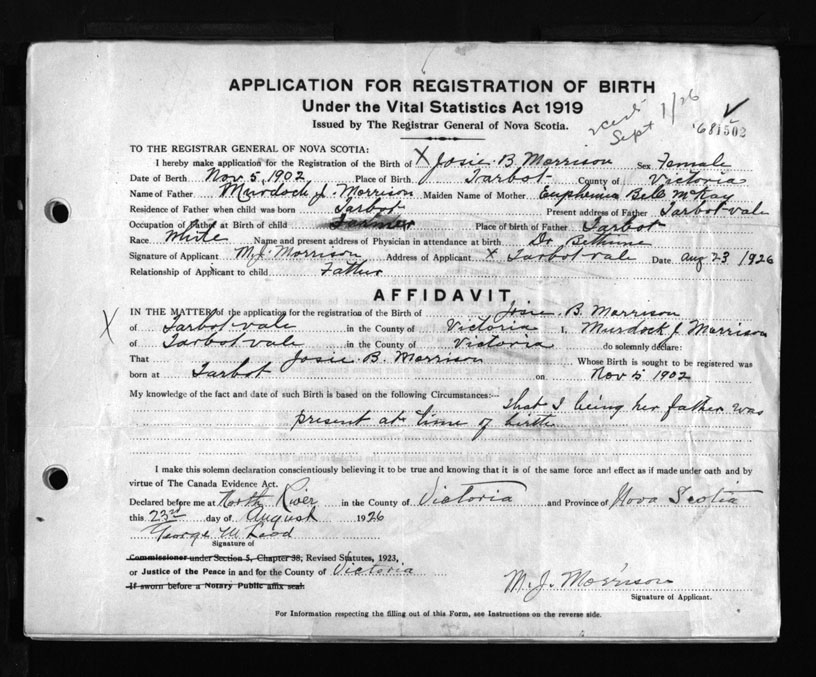 APPLICATION FOR REGISTRATION OF BIRTH
Under the Vital Statistics Act 1919
Issued by The Registrar General of Nova Scotia.
Sept 1/26
681502
TO THE REGISTRAR GENERAL OF NOVA SCOTIA:
I hereby make application for the Registration of the Birth of X Josie B. Morrison Sex Female
Date of Birth Nov 5, 1902 Place of Birth Tarbot County of Victoria
Name of Father Murdock J. Morrison Maiden Name of Mother Euphemia Bell McKay
Residence of Father when child was born Tarbot Present address of Father Tarbotvale
Occupation of Father at Birth of child Farmer Place of birth of Father Tarbot
Race White Name and present address of Physician in attendance at birth Dr Bethune
Signature of Applicant M.J. Morrison Address of Applicant X Tarbotvale Date Aug 23 1926
Relationship of Applicant to child Father
AFFIDAVIT.
IN THE MATTER of the application for the registration of the Birth of Josie B. Morrison
X of Tarbotvale in the County of Victoria I, Murdock J Morrison
of Tarbotvale in the County of Victoria do solemnly declare:
That Josie B. Morrison Whose Birth is sought to be registered was
born at Tarbot on Nov 5 1902
My knowledge of the fact and date of such Birth is based on the following Circumstances:— that I being her father was
present at time of birth
I make this solemn declaration conscientiously believing it to be true and knowing that it is of the same force and effect as if made under oath and by
virtue of The Canada Evidence Act.
Declared before me at North River in the County of Victoria and Province of Nova Scotia
this 23rd day of August 1926
George McLeod
Signature of
Commissioner under Section 5, Chapter 38, Revised Statutes, 1923,
or Justice of the Peace in and for the County of Victoria
If sworn before a Notary Public affix seal.
M.J. Morrison
Signature of Applicant.
For Information respecting the filling out of this Form, see Instructions on the reverse side.